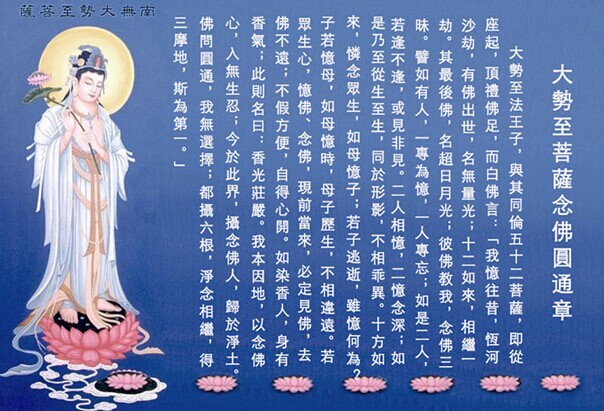 大勢至菩薩念佛圓通章
大勢至法王子，與其同倫五十二菩薩，即從
座起，頂禮佛足，而白佛言：「我憶往昔，恆河
沙劫，有佛出世，名無量光；十二如來，相繼一
劫。其最後佛，名超日月光；彼佛教我，念佛三
昧。譬如有人，一專為憶，一人專忘；如是二人，
若逢不逢，或見非見。二人相憶，二憶念深；如
是乃至從生至生，同於形影，不相乖異。十方如
來，憐念眾生，如母憶子；若子逃逝，雖憶何為？
子若憶母，如母憶時，母子歷生，不相違遠。若
眾生心，憶佛、念佛，現前當來，必定見佛，去
佛不遠；不假方便，自得心開。如染香人，身有
香氣；此則名曰：香光莊嚴。我本因地，以念佛
心，入無生忍；今於此界，攝念佛人，歸於淨土。
佛問圓通，我無選擇；都攝六根，淨念相繼，得
三摩地，斯為第一。」
南無大勢至菩薩